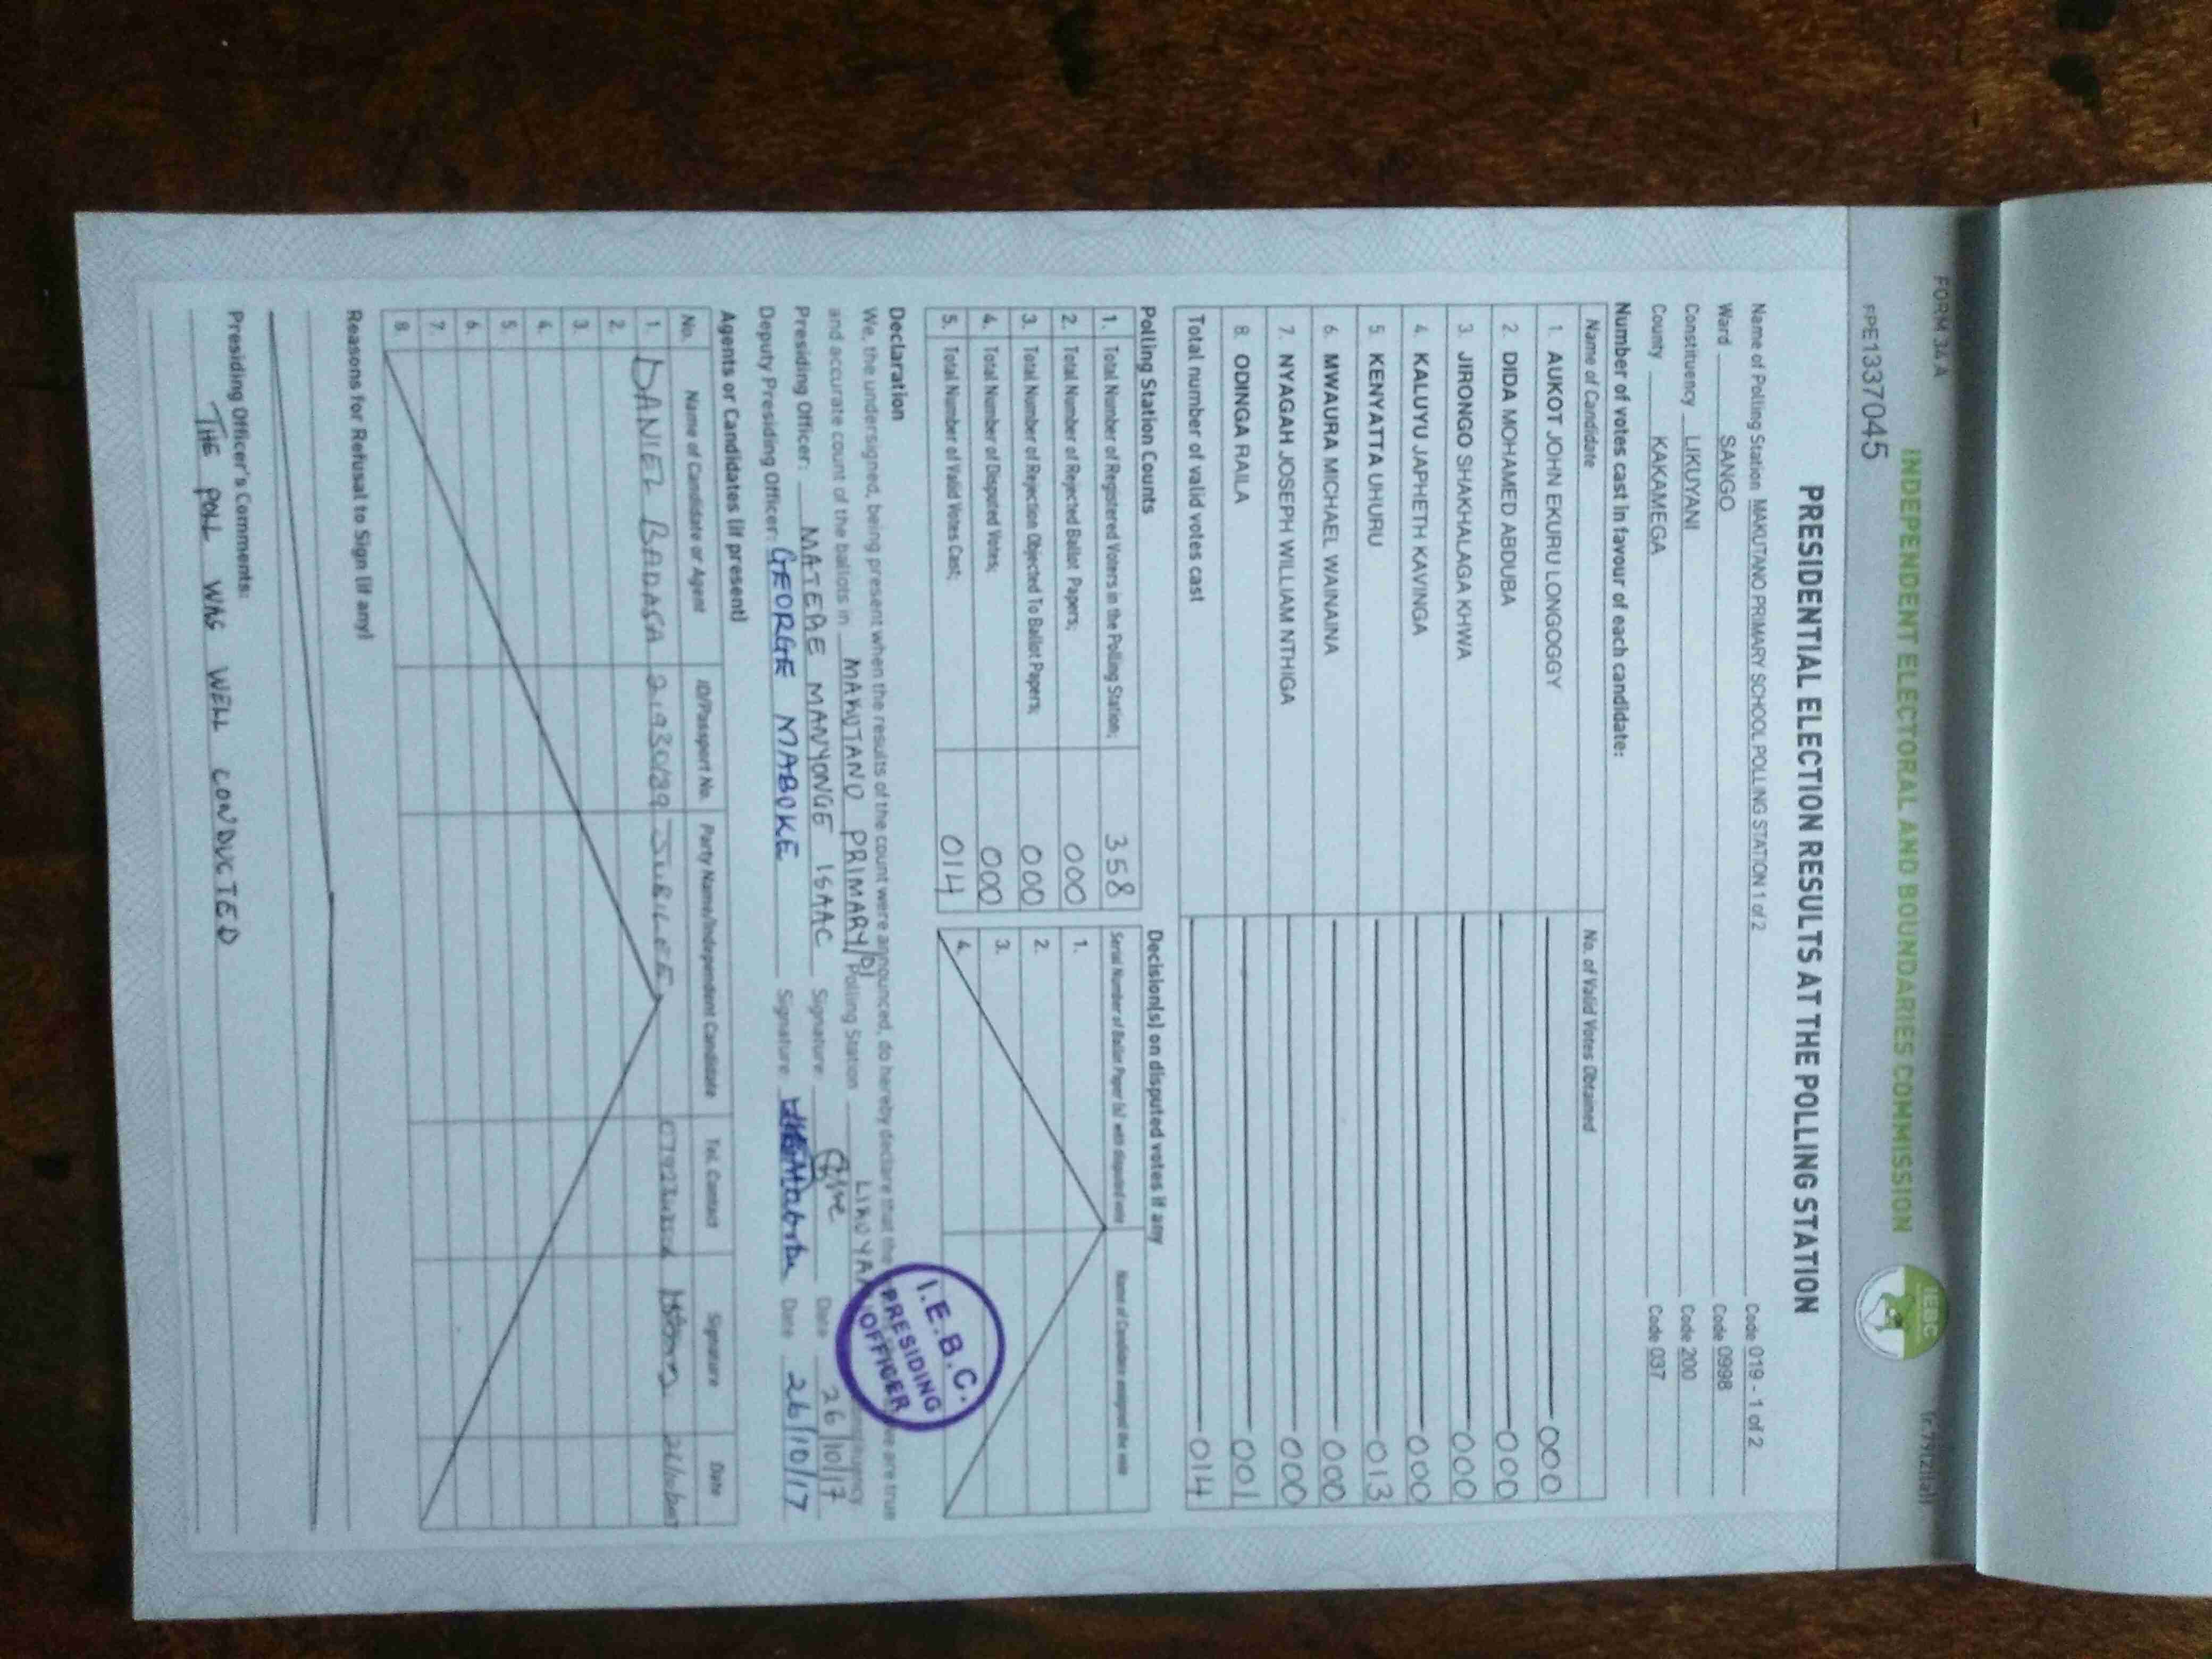 FORM 34A
INDEPENDENT ELECTORAL AND BOUNDARIES COMMISSION
IEBC
PRE1337045
PRESIDENTIAL ELECTION RESULTS AT THE POLLING STATION
Name of Polling Station MAKUTANO PRIMARY SCHOOL POLLING STATION 1 of 2 Code 019 - 1 of 2
Ward SANGO Code 0998
Constituency LIKUYANI Code 200
County KAKAMEGA Code 037
Number of votes cast in favour of each candidate:
Name of Candidate No. of Valid Votes Obtained
1. AUKOT JOHN EKURU LONGOGGY 000
2. DIDA MOHAMED ABDUBA 000
3. JIRONGO SHAKHALAGA KHWA 000
4. KALUYU JAPHETH KAVINGA 000
5. KENYATTA UHURU 013
6. MWAURA MICHAEL WAINAINA 000
7. NYAGAH JOSEPH WILLIAM NTHIGA 000
8. ODINGA RAILA 001
Total number of valid votes cast 014
Polling Station Counts
1. Total Number of Registered Voters in the Polling Station; 358
2. Total Number of Rejected Ballot Papers; 000
3. Total Number of Rejection Objected To Ballot Papers; 000
4. Total Number of Disputed Votes; 000
5. Total Number of Valid Votes Cast; 014
Decision(s) on disputed votes if any
Serial Number of Ballot Paper (s) with disputed vote Name of Candidate assigned the vote
1.
2.
3.
4.
Declaration
We, the undersigned, being present when the results of the count were announced, do hereby declare that the are true
and accurate count of the ballots in MAKUTANO PRIMARY/01 Polling Station
Presiding Officer: MATERE MANYONGE ISAAC Signature Date 26/10/17
Deputy Presiding Officer: GEORGE MABOKE Signature Date 26/10/17
I.E.B.C.
PRESIDING
OFFICER
Agents or Candidates (if present)
No. Name of Candidate or Agent ID/Passport No. Party Name/Independent Candidate Tel. Contact Signature Date
1. DANIEL JUBILEE
2.
3.
4.
5.
6.
7.
8.
Reasons for Refusal to Sign (if any)
Presiding Officer's Comments:
THE POLL WAS WELL CONDUCTED